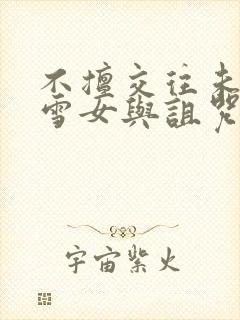 不擅交往未
雪女與詛咒
宇宙紫火